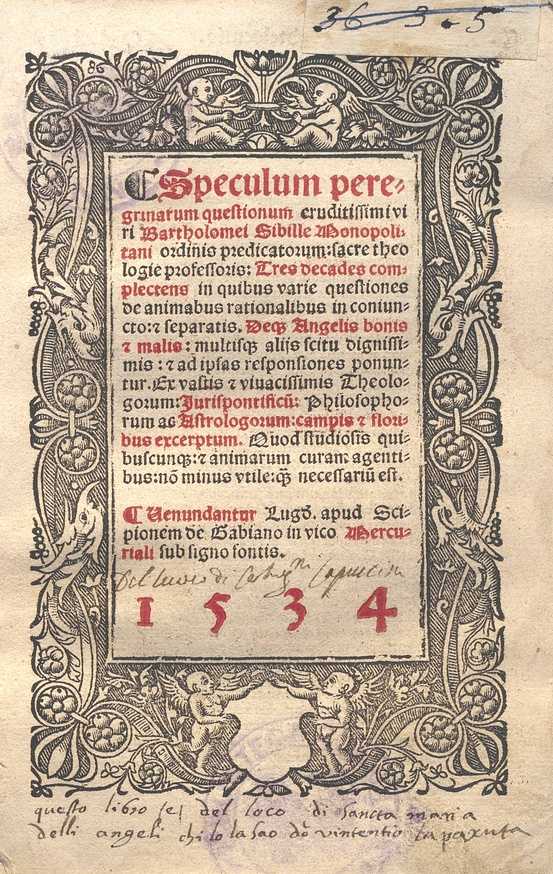 36 3 . 5
☾Speculum pere-
grinarum questionum eruditissimi vi
ri Bartholomei Sibille Monopoli-
tani ordinis predicatorum: sacre theo
logie professoris: Tres decades com-
plectens in quibus varie questiones
de animabus rationalibus in coniun-
cto: ⁊ separatis. Deqꝫ Angelis bonis
⁊ malis: multisqꝫ alijs scitu dignissi-
mis: ⁊ ad ipsas responsiones ponun-
tur. Ex vastis ⁊ viuacissimis Theolo-
gorum: Jurispontificū: Philosopho-
rum ac Astrologorum: campis ⁊ flori-
bus excerptum. Quod studiosis qui-
buscunqꝫ: ⁊ animarum curam agenti-
bus: nō minus vtile: qꝫ̄ necessariū est.
☾Uenundantur Lugd̄. apud Sci-
pionem de Gabiano in vico Mercu-
riali sub signo fontis.
Del luoco di
1534
questo libro e del loco di sancta maria
delli angeli chi lo lasao dō vintentio la paxuta